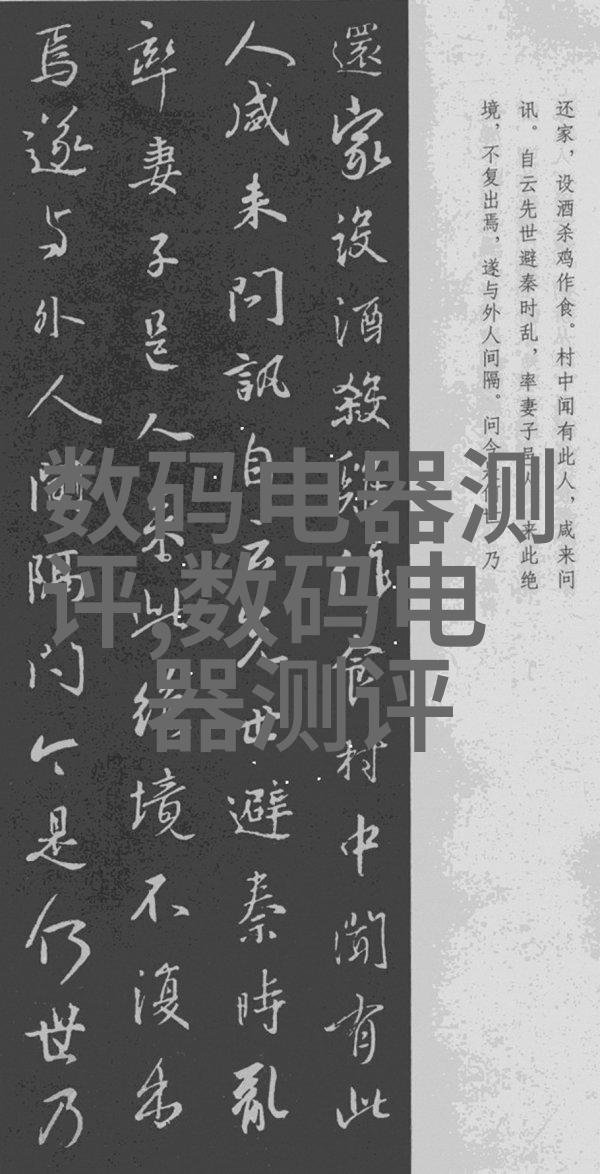 还家，设酒杀鸡作食。村中闻有此人，咸来问
讯。自云先世避秦时乱，率妻子邑人来此绝
境，不复出焉，遂与外人间隔。问今是何世，乃
還家設酒殺雞作食村中聞有此
人咸来問訊自云先世避秦時亂
率妻子邑人来此絶境不復出
焉遂与外人間隔問今是何世乃
数码电器测
评,数码电
器测评